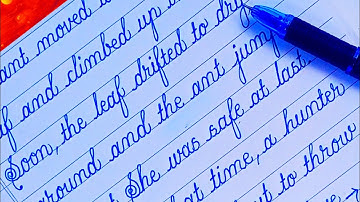 ant moved
and climbed up
Soon, the leaf drifted to dry
ground and the ant jum
She was safe at last.
at time, a hunter
to throw